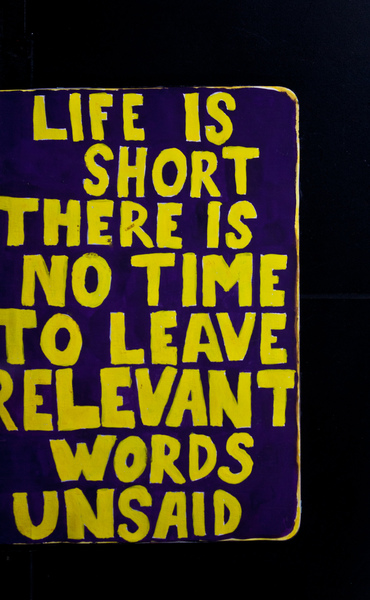 LIFE IS
SHORT
THERE IS
NO TIME
TO LEAVE
RELEVANT
WORDS
UNSAID